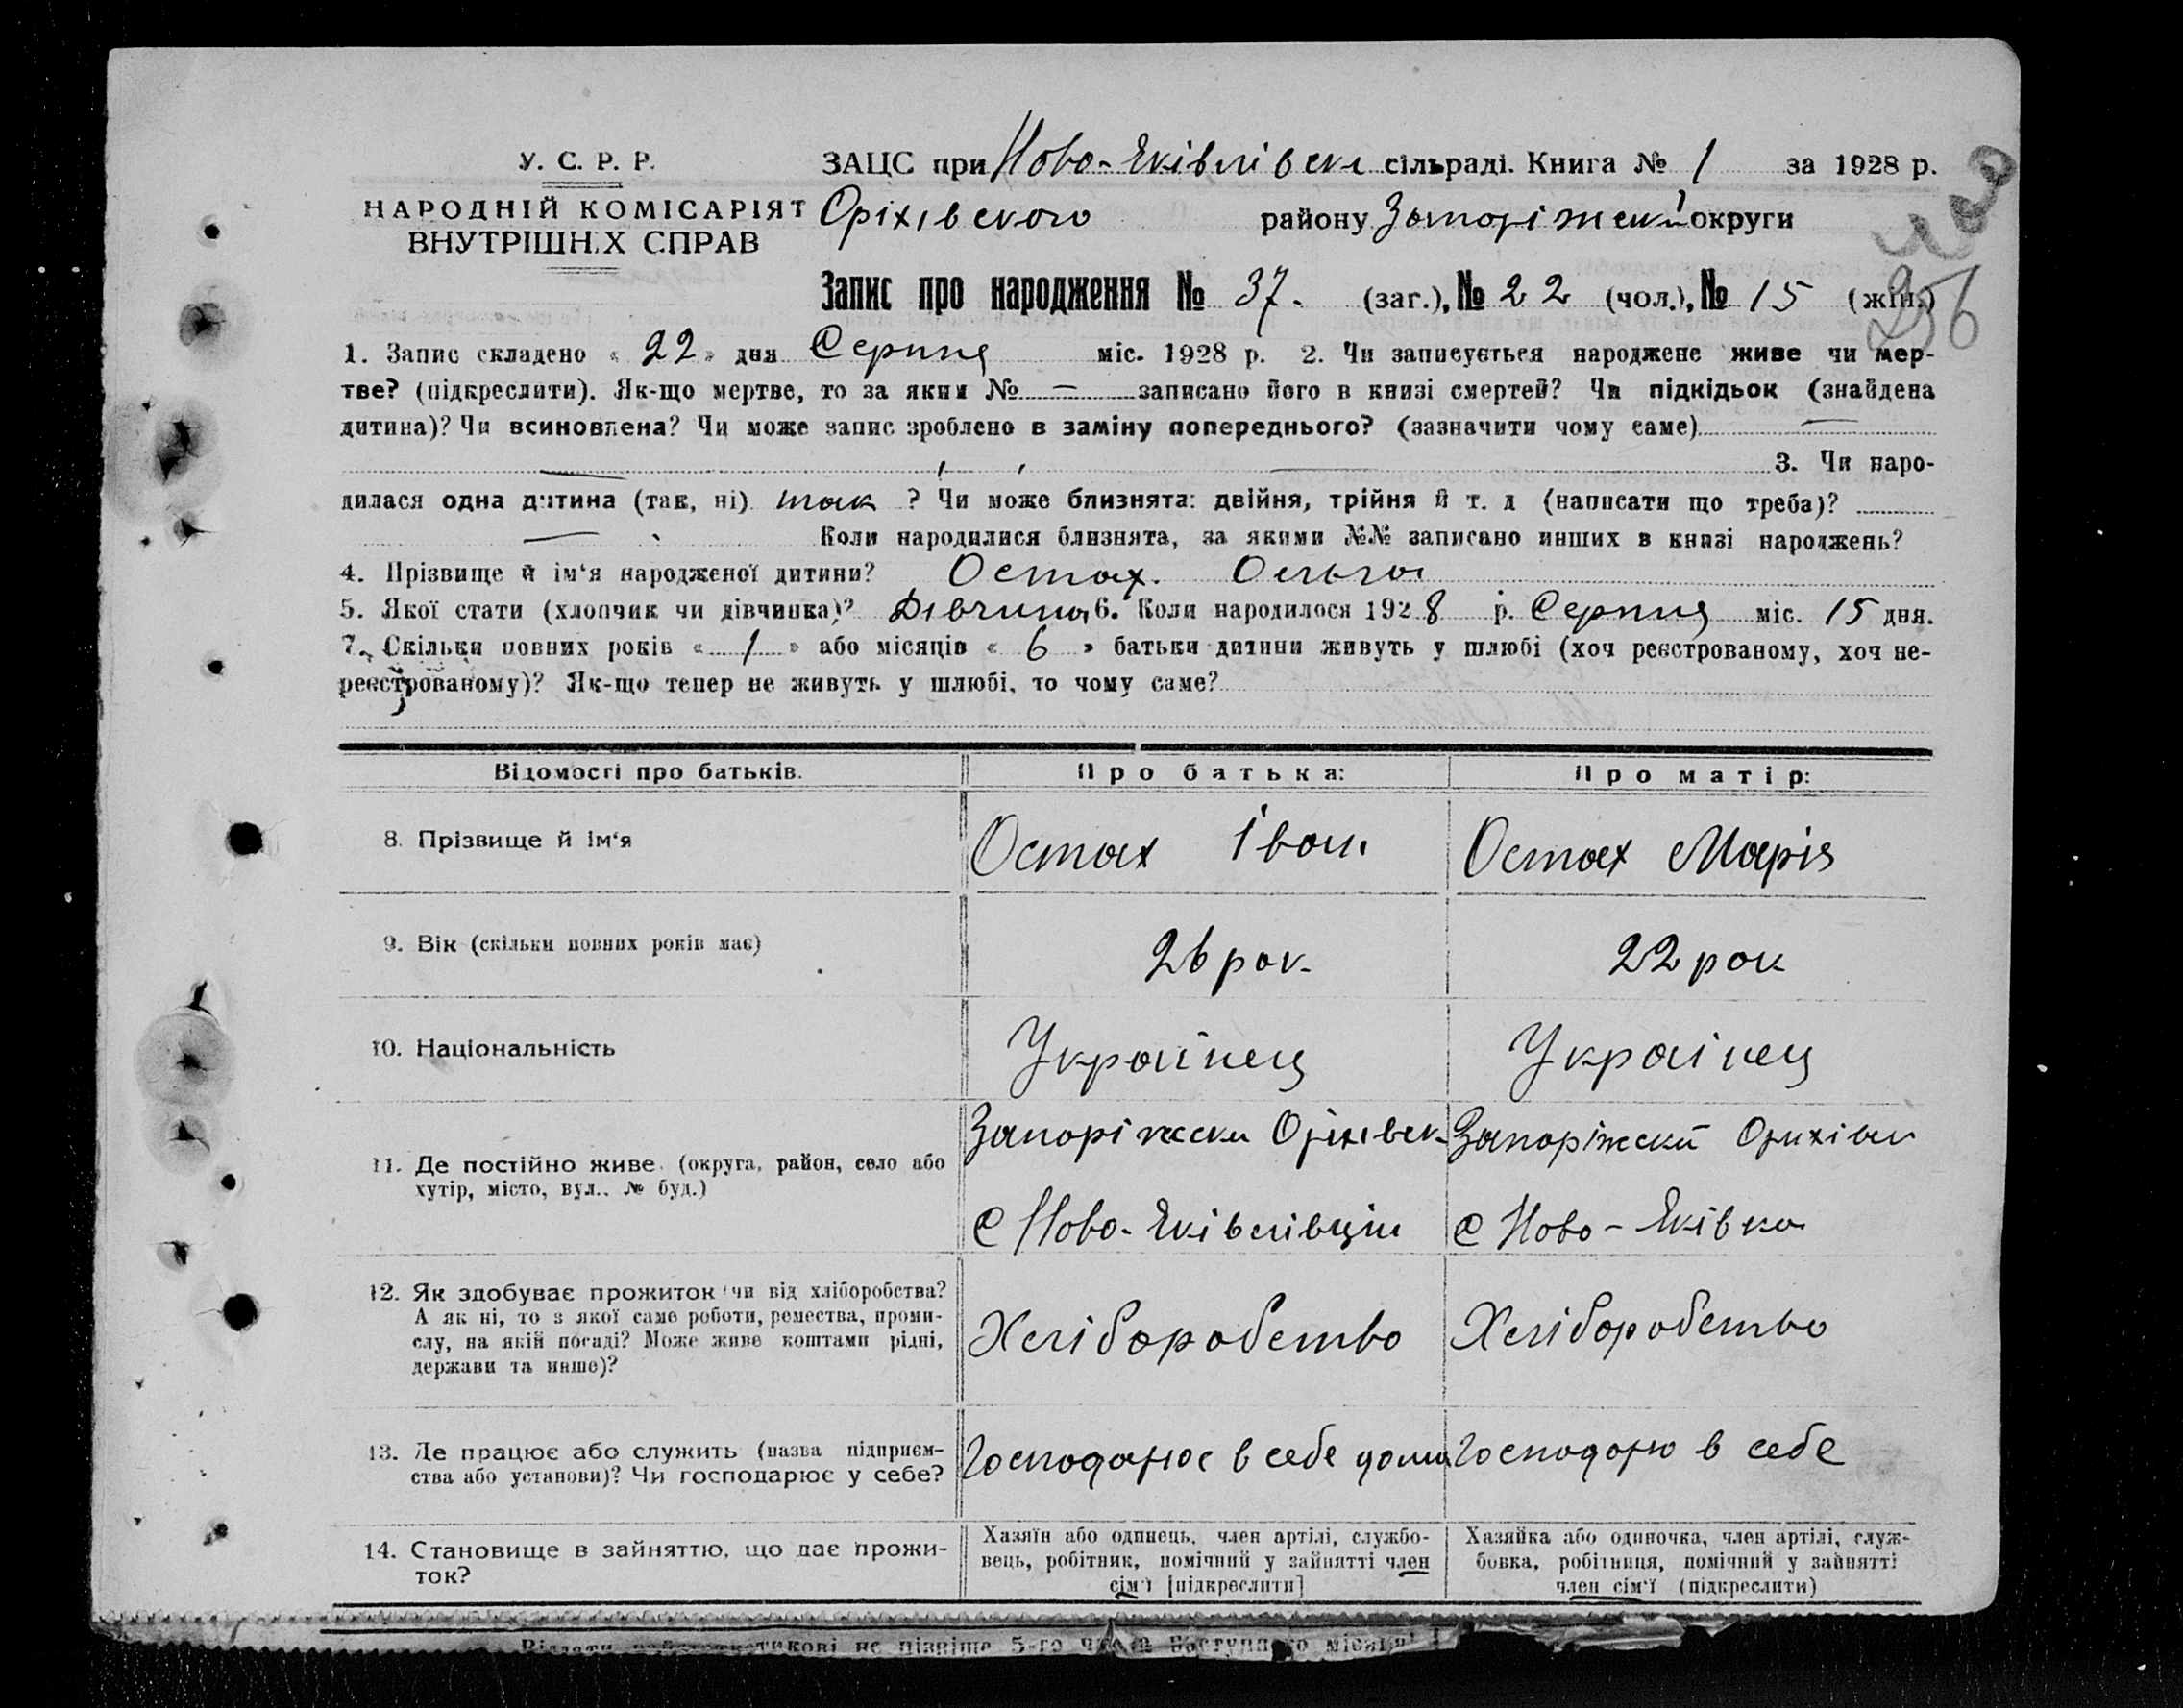 У. С. Р. Р.
НАРОДНІЙ КОМІСАРІЯТ
ВНУТРІШНІХ СПРАВ
ЗАЦС при Ново-Яківлівск сільраді. Книга № 1 за 1928 р.
Оріхівського району Запоріжської округи
Запис про народження № 37. (заг.), № 22 (чол.), № 15 (жін.)
256
1. Запис складено « 22 » дня Серпня міс. 1928 р. 2. Чи записується народжене живе чи мер-
тве? (підкреслити). Як-що мертве, то за яким № — записано його в книзі смертей? Чи підкідьок (знайдена
дитина)? Чи всиновлена? Чи може запис зроблено в заміну попереднього? (зазначити чому саме) —
— 3. Чи наро-
дилася одна дитина (так, ні) так ? Чи може близнята: двійня, трійня й т. д (написати що треба)?
— Коли народилися близнята, за якими №№ записано инших в книзі народжень?
4. Прізвище й ім‘я народженої дитини? Остах. Ольга
5. Якої стати (хлопчик чи дівчинка)? Дівчина 6. Коли народилося 1928 р. Серпня міс. 15 дня.
7. Скільки повних років « 1 » або місяців « 6 » батьки дитини живуть у шлюбі (хоч реєстрованому, хоч не-
реєстрованому)? Як-що тепер не живуть у шлюбі, то чому саме?
Відомості про батьків. Про батька: Про матір:
8. Прізвище й ім‘я Остах Іван. Остах Марія
9. Вік (скільки повних років має) 26 рок. 22 рок
10. Національність Українец Українец
11. Де постійно живе (округа, район, село або
хутір, місто, вул., № буд.)
Запоріжски Оріхівск
с Ново-Яківлівци
Запоріжский Орихівск
с Ново-Яківка
12. Як здобуває прожиток (чи від хліборобства?
А як ні, то з якої саме роботи, ремества, проми-
слу, на якій посаді? Може живе коштами рідні,
держави та инше)?
Хліборобство Хліборобство
13. Де працює або служить (назва підприєм-
ства або установи)? Чи господарює у себе?
Господарює в себе дома Господарю в себе
14. Становище в зайняттю, що дає прожи-
ток?
Хазяїн або одинець, член артілі, службо-
вець, робітник, помічний у зайнятті член
сім‘ї [підкреслити]
Хазяйка або одиночка, член артілі, служ-
бовка, робітниця, помічний у зайнятті
член сім‘ї (підкреслити)
не пізніше 5-го